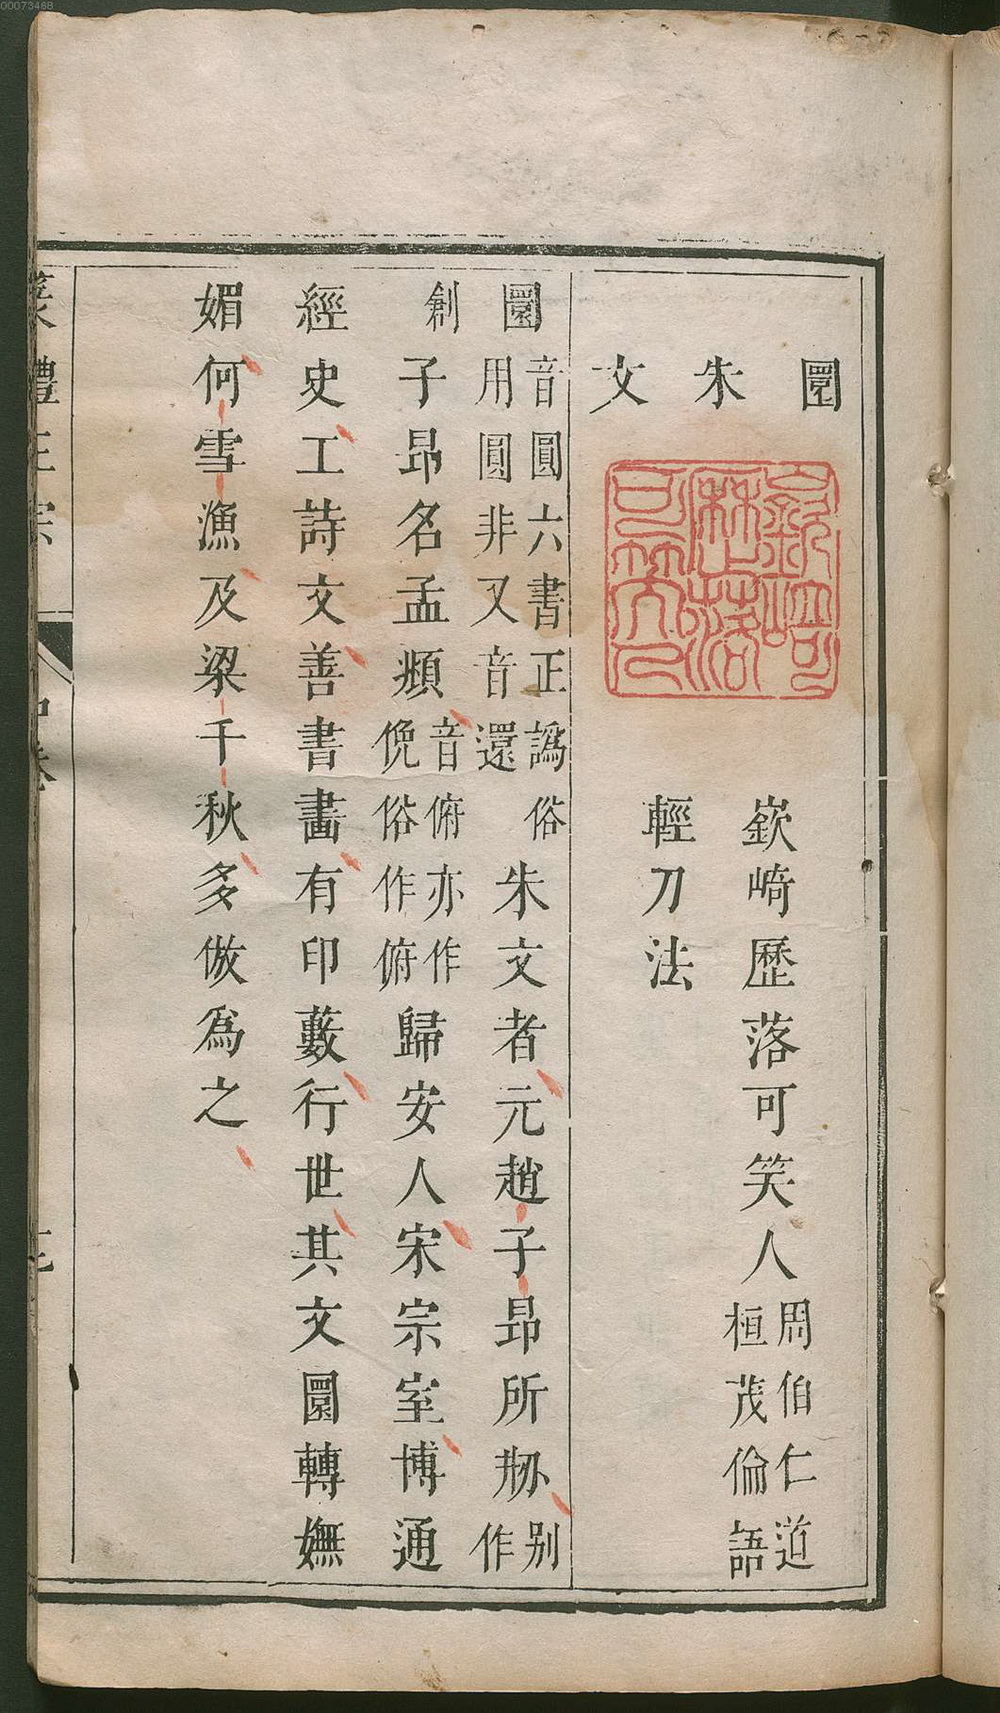 00073468
圜朱文
嶔崎
歷落
可笑人
嶔崎歷落可笑人周伯仁道桓茂倫語
輕刀法
圜音圓六書正譌俗用圓非又音還朱文者元趙子昂所刱别作
創子昂名孟頫音俯亦作俛俗作俯歸安人宋宗室博通
經史工詩文善書畵有印藪行世其文圜轉嫵
媚何雪漁及梁千秋多倣爲之